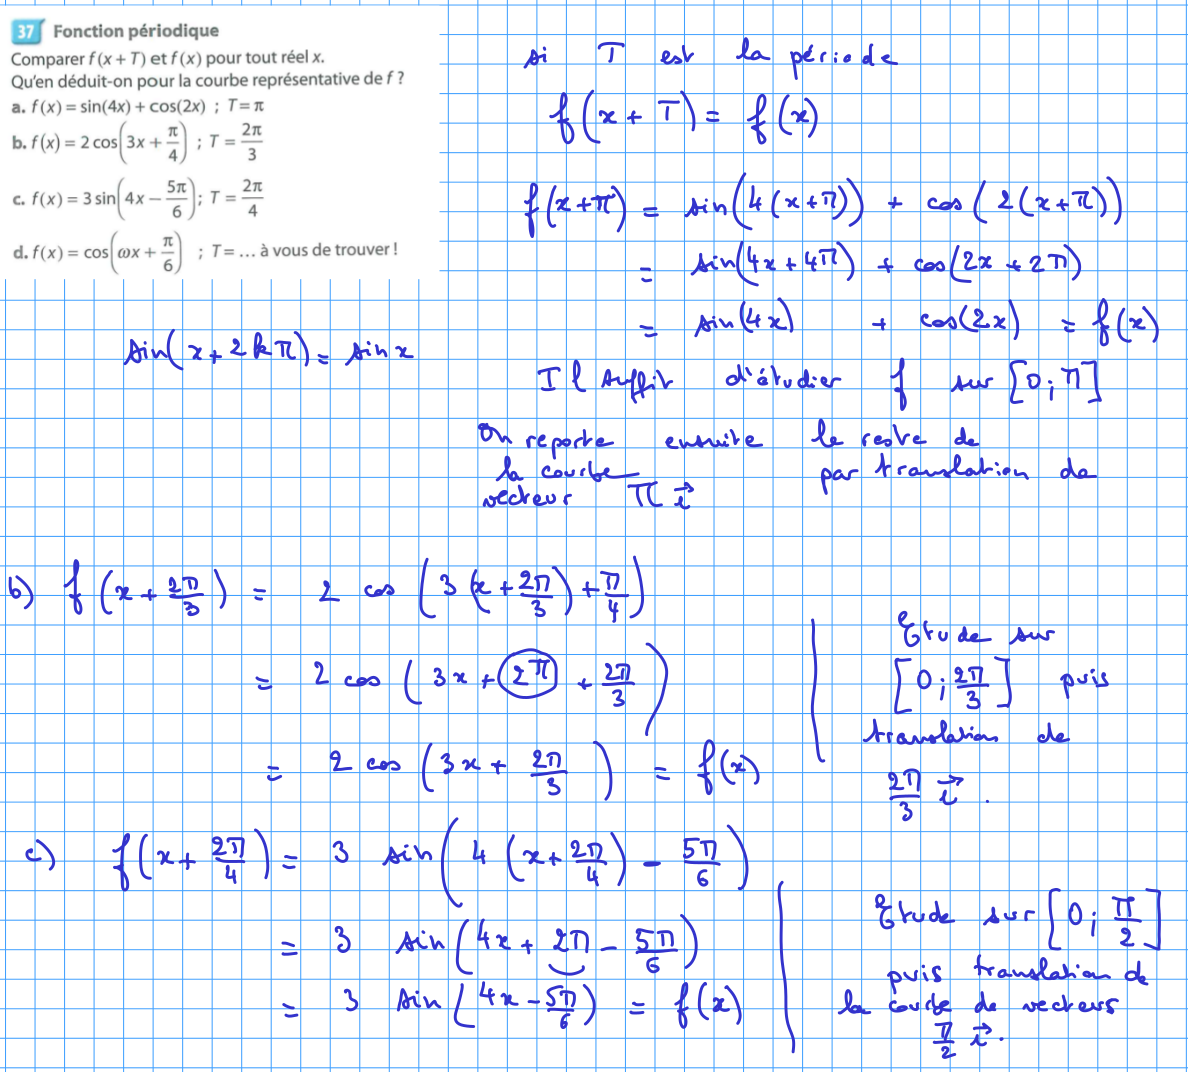 37 Fonction périodique
Comparer f(x + T) et f(x) pour tout réel x.
Qu'en déduit-on pour la courbe représentative de f ?
a. f(x) = sin(4x) + cos(2x) ; T = π
b. f(x) = 2 cos(3x + π/4) ; T = 2π/3
c. f(x) = 3 sin(4x − 5π/6) ; T = 2π/4
d. f(x) = cos(ωx + π/6) ; T = ... à vous de trouver !
si T est la période
f(x + T) = f(x)
f(x+π) = sin(4(x+π)) + cos(2(x+π))
= sin(4x + 4π) + cos(2x + 2π)
= sin(4x) + cos(2x) = f(x)
sin(x + 2kπ) = sin x
Il suffit d'étudier f sur [0 ; π]
On reporte ensuite le reste de
la courbe par translation de
vecteur π i⃗
b) f(x + 2π/3) = 2 cos(3(x + 2π/3) + π/4)
= 2 cos(3x + 2π + 2π/3)
= 2 cos(3x + 2π/3) = f(x)
Etude sur
[0 ; 2π/3] puis
translation de
2π/3 i⃗.
c) f(x + 2π/4) = 3 sin(4(x + 2π/4) − 5π/6)
= 3 sin(4x + 2π − 5π/6)
= 3 sin(4x − 5π/6) = f(x)
Etude sur [0 ; π/2]
puis translation de
la courbe de vecteurs
π/2 i⃗.